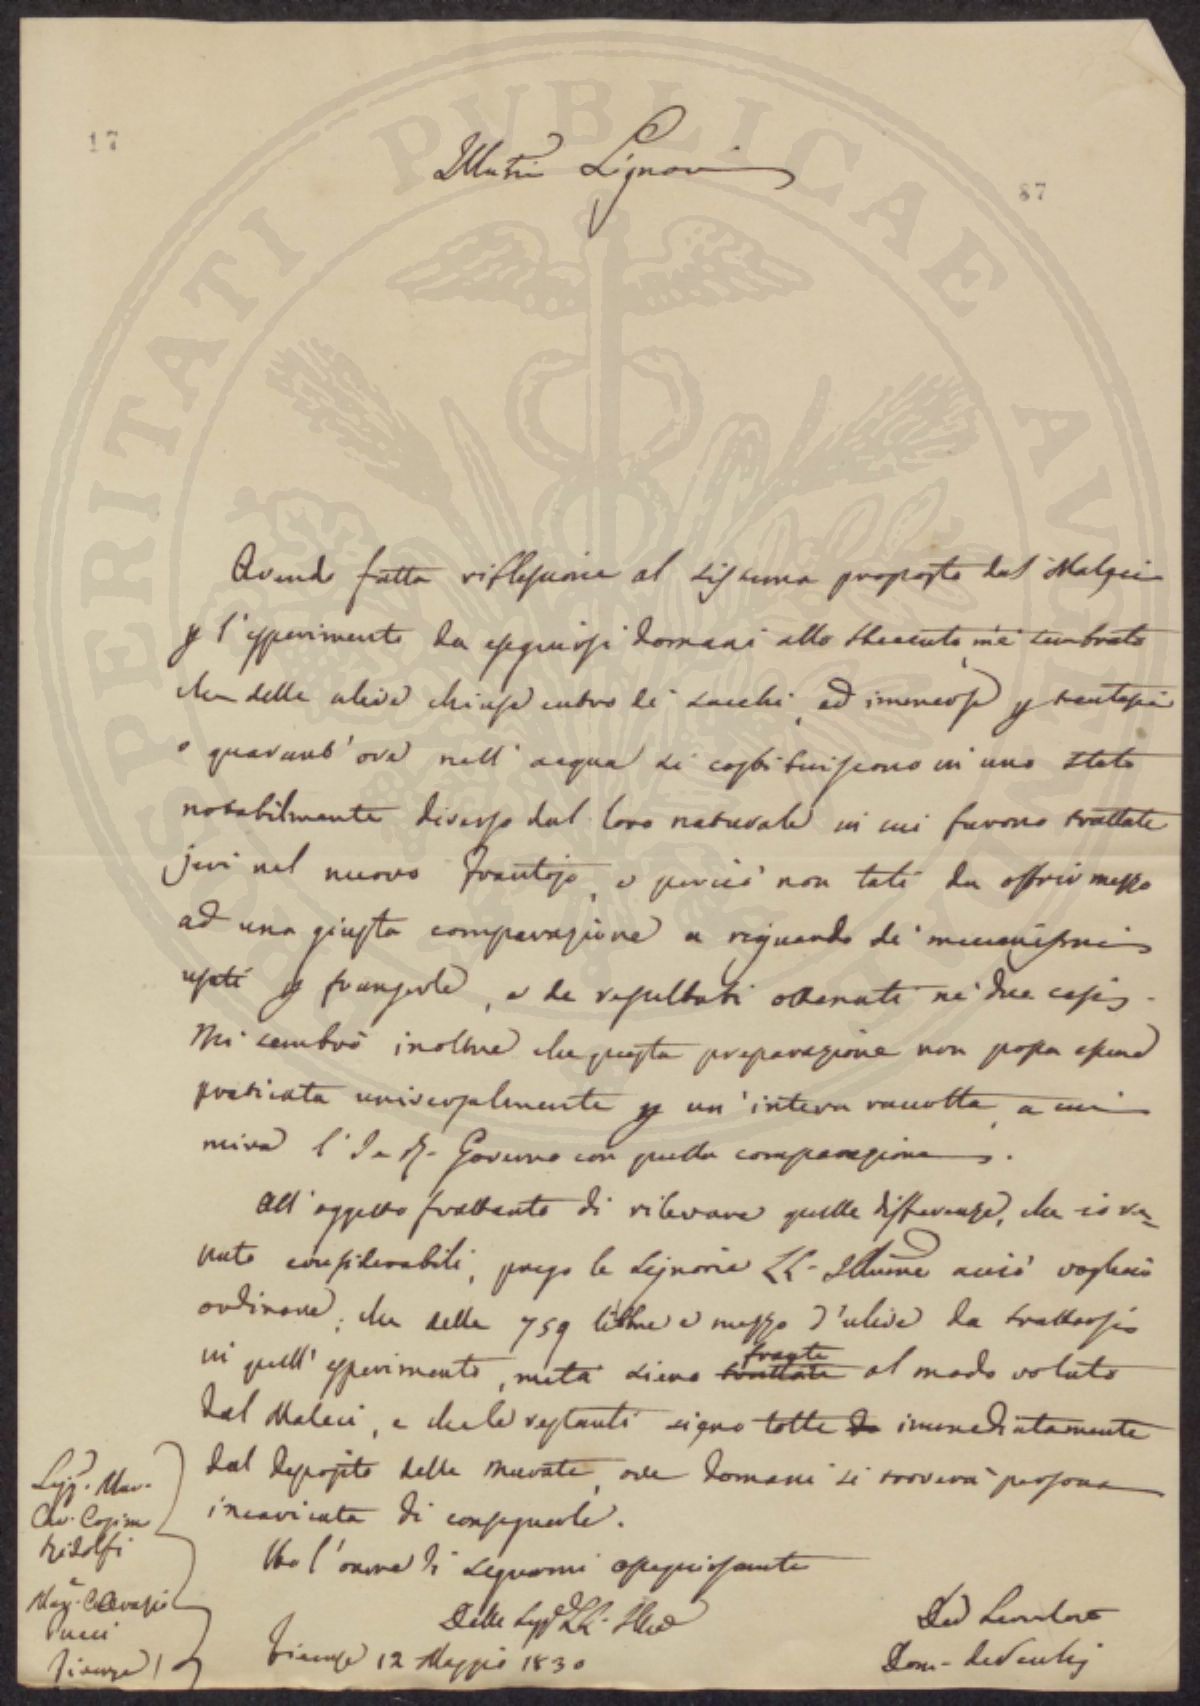 17
87
Illustri Signori
PROSPERITATI PVBLICAE AVGENDAE
Avendo fatta riflessione al sistema proposto dal Malpeci
p l'esperimento da eseguirsi domani allo Steccuto, m'è sembrato
che delle ulive chiuse entro de' sacchi, ed immerse p trentasei
o quarant'ore nell'acqua si costituiscono in uno stato
notabilmente diverso dal loro naturale in cui furono trattate
jeri nel nuovo Frantojo, e perciò non tali da offrir mezzo
ad una giusta comparazione a riguardo de' meccanismi
usati p frangerle, e de resultati ottenuti ne' due casi.
Mi sembrò inoltre che questa preparazione non possa essere
praticata universalmente p un' intera raccolta, a cui
mira l'I. e R. Governo con quella comparazione.
All'oggetto frattanto di rilevare quelle differenze, che io re=
puto considerabili, prego le Signorie LL. Illume acciò vogliano
ordinare, che delle 759 libbre e mezzo d'ulive da trattarsi
in quell'esperimento, metà sieno trattate frante al modo voluto
dal Maleci, e che le restanti siano tolte da immediatamente
dal deposito delle Murate, ove domani si troverà persona
incaricata di conseguarle.
Ho l'onore di segnarmi ossequiosamente
Delle Sigg. LL. Illme
Firenze 12 Maggio 1830
Sigg. Mar.
Cav. Cosimo
Ridolfi
March.
Pucci
Firenze
Dev Servitore